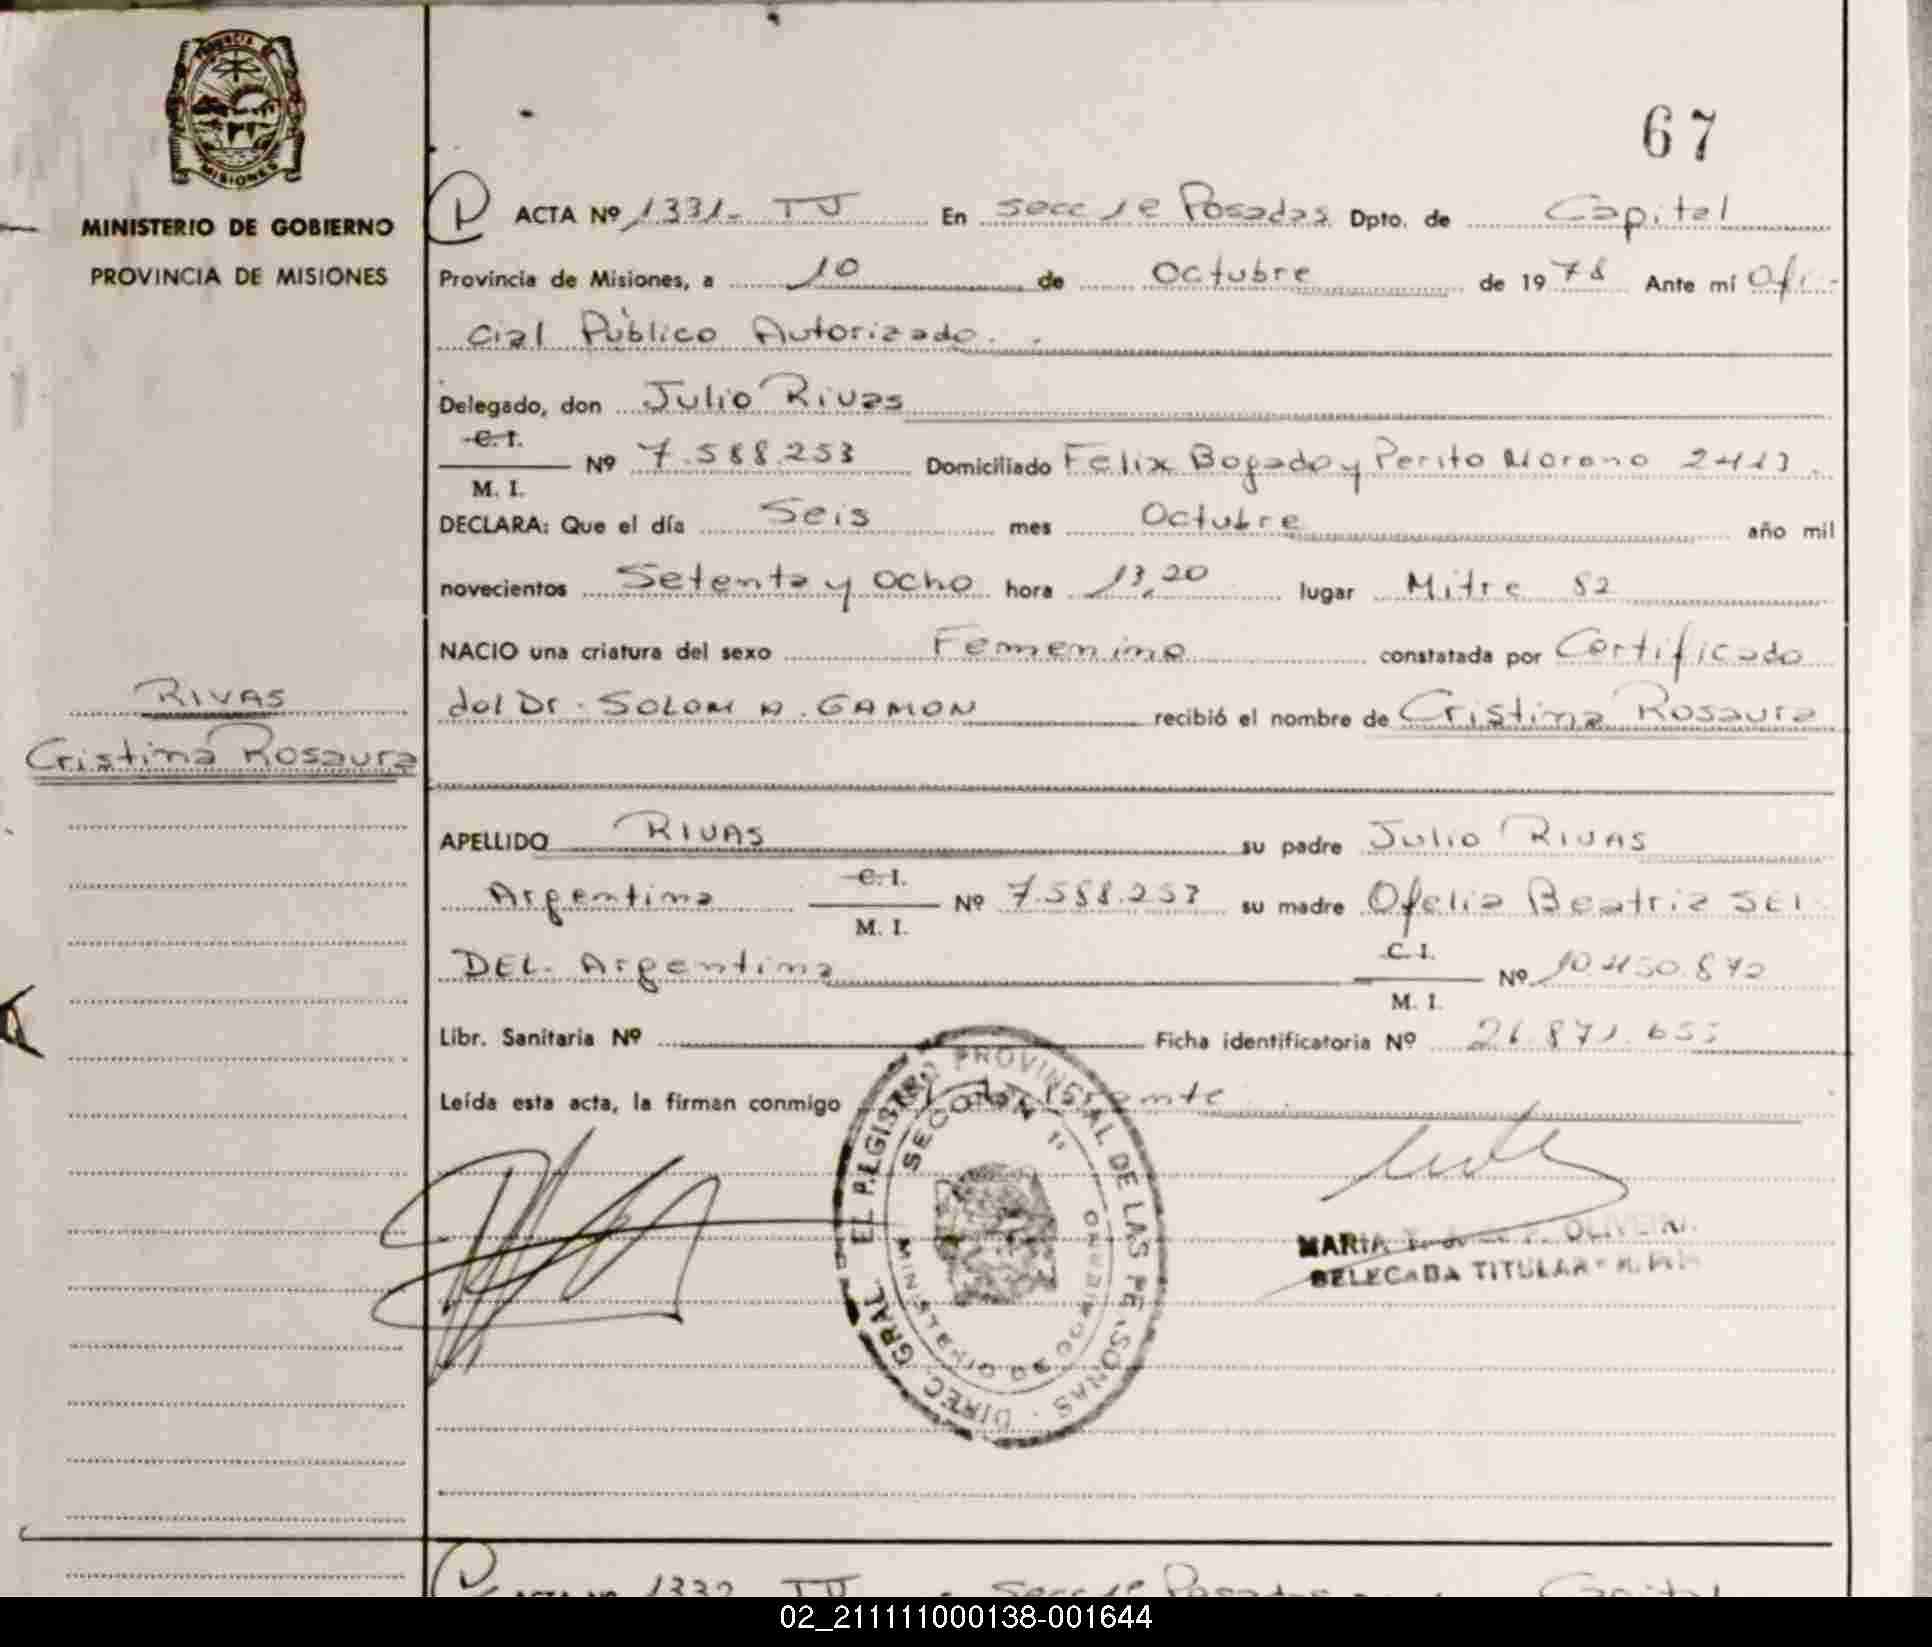 67
PROVINCIA DE
MISIONES
MINISTERIO DE GOBIERNO
PROVINCIA DE MISIONES
RIVAS
Cristina Rosaura
ACTA Nº 1331- TJ En secc 1e Posadas Dpto. de Capital
Provincia de Misiones, a 10 de Octubre de 1978 Ante mí Ofi-
cial Público Autorizado.
Delegado, don Julio Rivas
C. I.
Nº 7.588.253 Domiciliado Felix Bogado y Perito Moreno 2413
M. I.
DECLARA: Que el día Seis mes Octubre año mil
novecientos Setenta y ocho hora 13,20 lugar Mitre 82
NACIO una criatura del sexo Femenino constatada por Certificado
del Dr. SOLOM A. GAMON recibió el nombre de Cristina Rosaura
APELLIDO RIVAS su padre Julio RIVAS
C. I.
Argentina Nº 7.588.253 su madre Ofelia Beatriz SEI-
M. I.
C. I.
DEL- Argentina Nº 10.450.872
M. I.
Libr. Sanitaria Nº Ficha identificatoria Nº 26.871.655
Leída esta acta, la firman conmigo
DIREC. GRAL. DEL REGISTRO PROVINCIAL DE LAS PERSONAS
SECCION 1º
MINISTERIO DE GOBIERNO
MARIA T. OLIVEIRA
DELEGADA TITULAR
ACTA Nº 1332 TJ Secc 1e Posadas Capital
02_211111000138-001644